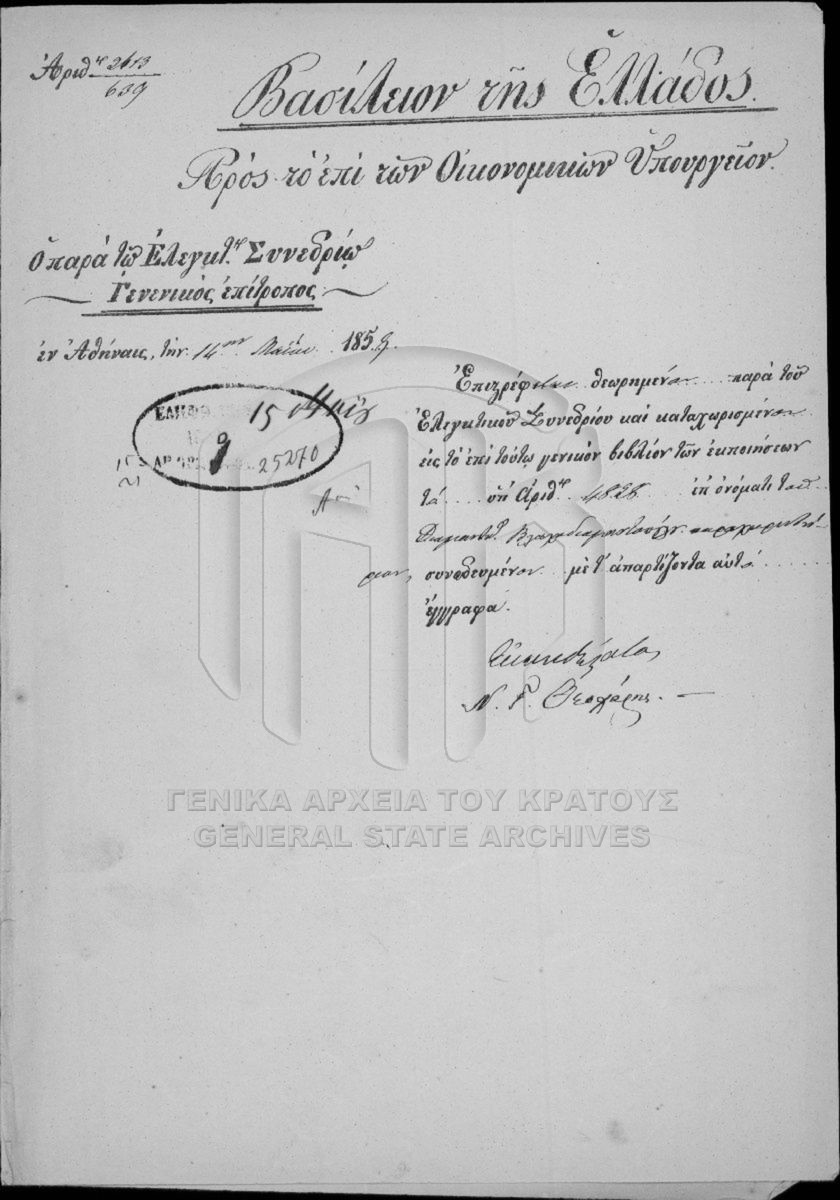 Ἀριθ. 2613
639
Βασίλειον τῆς Ἑλλάδος.
Πρὸς τὸ ἐπὶ τῶν Οἰκονομικῶν Ὑπουργεῖον.
Ὁ παρὰ τῷ Ἐλεγκτ. Συνεδρίῳ
Γενενικὸς ἐπίτροπος
ἐν Ἀθήναις, τὴν 14 Μαΐου 1859
15 Μαΐου
25270
Ἐπιστρέφεται θεωρημένον παρὰ τοῦ
Ἐλεγκτικοῦ Συνεδρίου καὶ καταχωρισμένον
εἰς τὸ ἐπὶ τούτῳ γενικὸν βιβλίον τῶν ἐκποιήσεων
τὸ ὑπ' Ἀριθ. ἐπ' ὀνόματι τοῦ
συνοδευμένον μὲ τ' ἀπαρτίζοντα αὐτὸ
ἔγγραφα.
Ν. Γ. Θεοχάρης.
ΓΕΝΙΚΑ ΑΡΧΕΙΑ ΤΟΥ ΚΡΑΤΟΥΣ
GENERAL STATE ARCHIVES